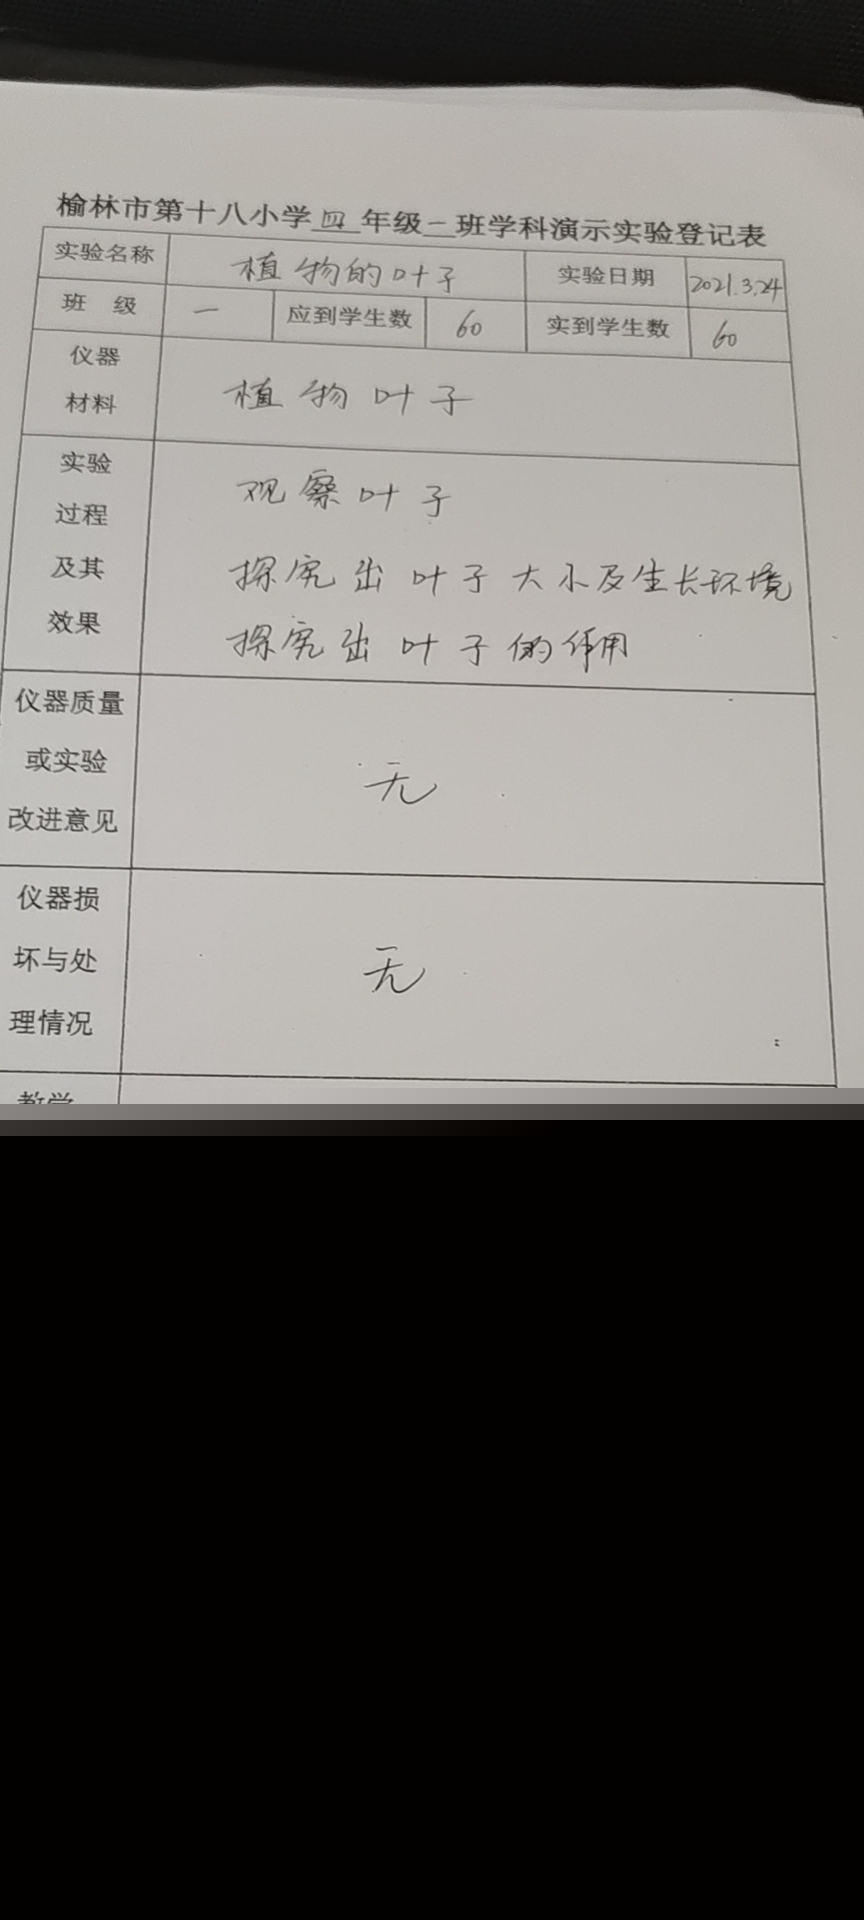 榆林市第十八小学四年级一班学科演示实验登记表
实验名称 植物的叶子 实验日期 2021.3.24
班 级 一 应到学生数 60 实到学生数 60
仪器
材料
植物叶子
实验
过程
及其
效果
观察叶子
探究出叶子大小及生长环境
探究出叶子的作用
仪器质量
或实验
改进意见
无
仪器损
坏与处
理情况
无
教学